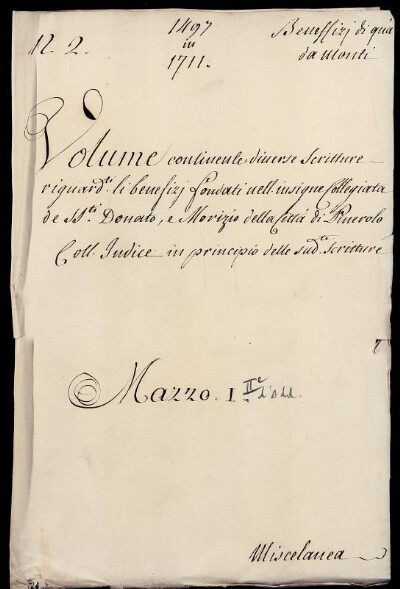 N. 2.
1497
in
1711.
Beneffizj di quà
da monti
Volume continente diverse Scritture
riguard.ti li benefizj fondati nell'insigne Collegiata
de SS.ti Donato, e Morizio della Città di Pinerolo
Coll'Indice in principio delle sud.te scritture
Mazzo. I II.e d'Add.
Miscelanea